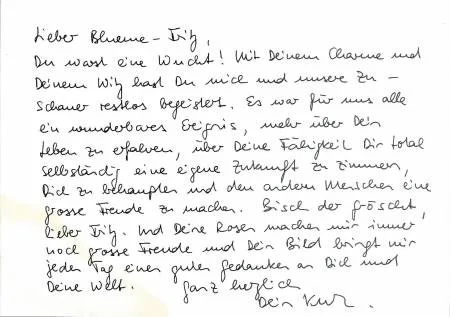 Lieber Blueme-Fritz,
Du warst eine Wucht! Mit Deinem Charme und
Deinem Witz hast Du mich und unsere Zu-
schauer restlos begeistert. Es war für uns alle
ein wunderbares Ereignis, mehr über Dein
Leben zu erfahren, über Deine Fähigkeit Dir total
selbständig eine eigene Zukunft zu zimmern,
Dich zu behaupten und den andern Menschen eine
grosse Freude zu machen. Bisch der gröscht,
lieber Fritz. Und Deine Rosen machen mir immer
noch grosse Freude und Dein Bild bringt mir
jeden Tag einen guten Gedanken an Dich und
Deine Welt. Ganz herzlich
Dein Kurt.